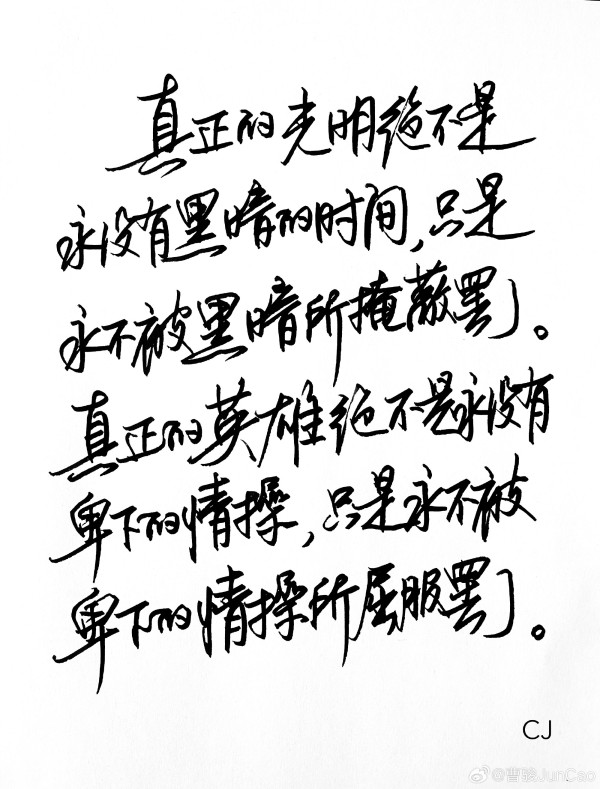 真正的光明绝不是
永没有黑暗的时间,只是
永不被黑暗所掩蔽罢了。
真正的英雄绝不是永没有
卑下的情操,只是永不被
卑下的情操所屈服罢了。
CJ
@曹骏JunCao